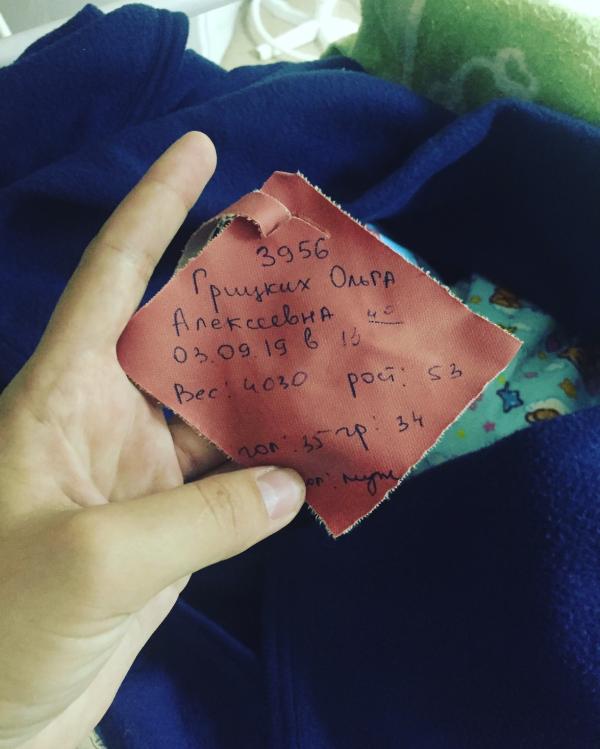 3956
Грицких Ольга
Алексеевна
03.09.19 в 13 40
Вес: 4030 рост: 53
гол: 35 гр: 34
пол: муж